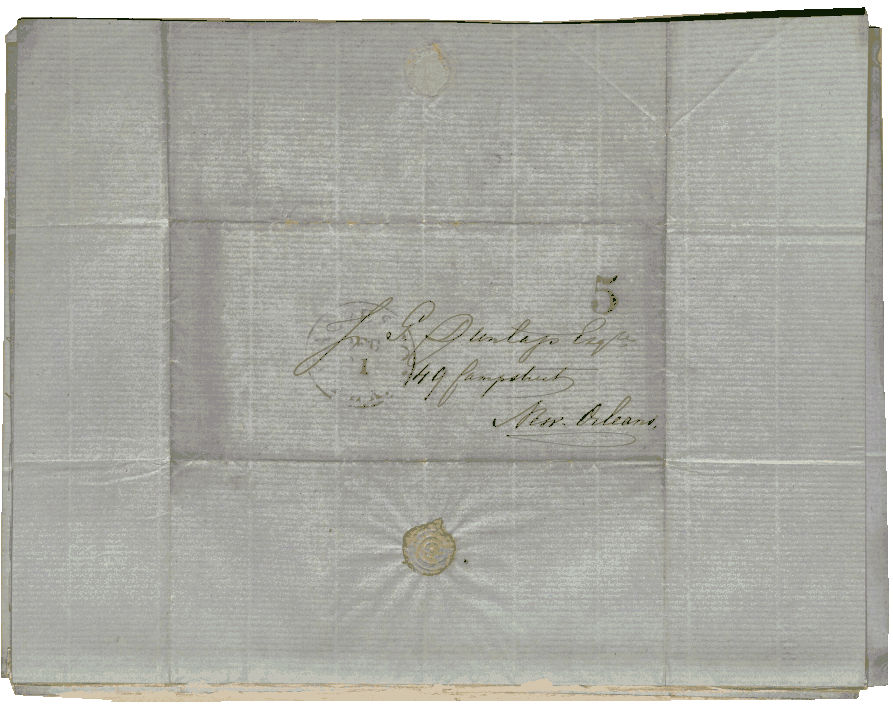 5
J. G. Dunlap Esqre
49 Campstreet
New-Orleans,
1